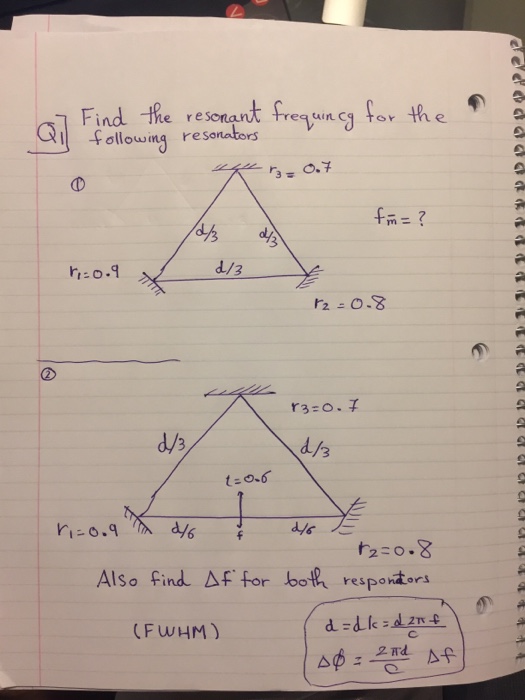 Q1] Find the resonant frequincy for the
following resonators
①
r3 = 0.7
fm̄ = ?
d/3
d/3
r1=0.9
d/3
r2 = 0.8
②
r3=0.7
d/3
d/3
t=0.6
r1=0.9
d/6
f
d/6
r2=0.8
Also find Δf for both
(FWHM)
d = dk = d 2π f / c
Δφ = 2πd / c Δf